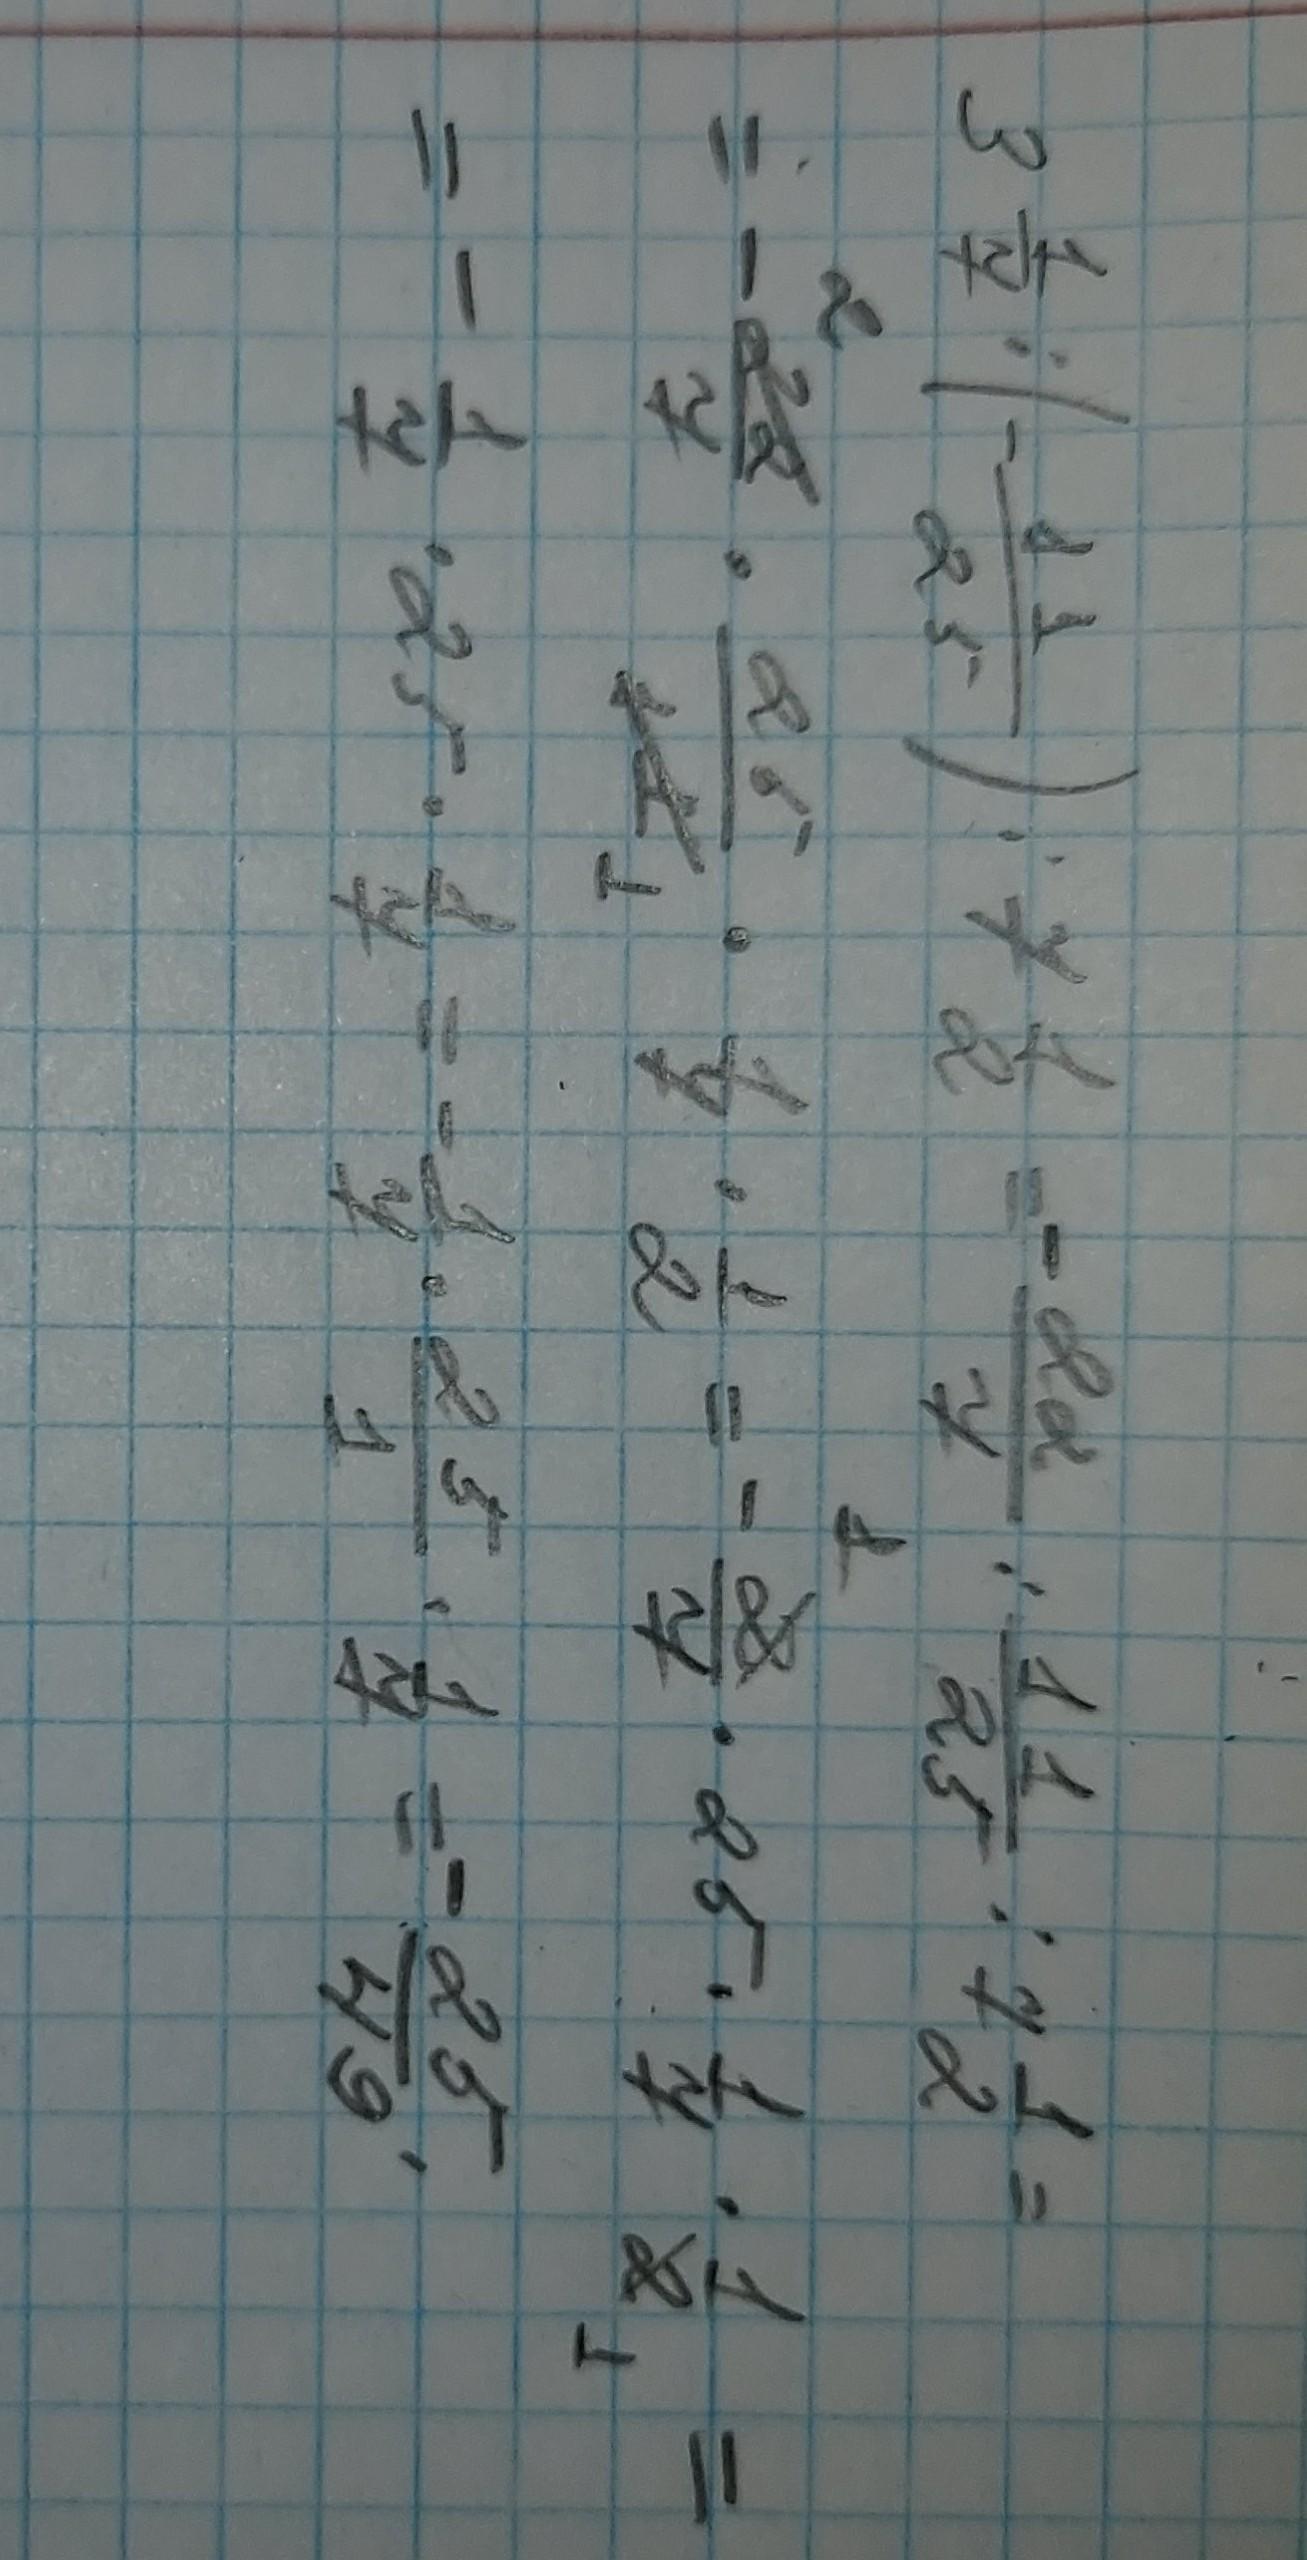 3 1/7 : (- 11/25) : 7 1/2 = - 22/7 : 11/25 : 7 1/2 =
= - 22/7 · 25/11 · 1/7 · 1/2 = - 2/7 · 25 · 1/7 · 1/2 =
= - 1/7 · 25 · 1/7 = - 1/7 · 25/1 · 1/7 = - 25/49.